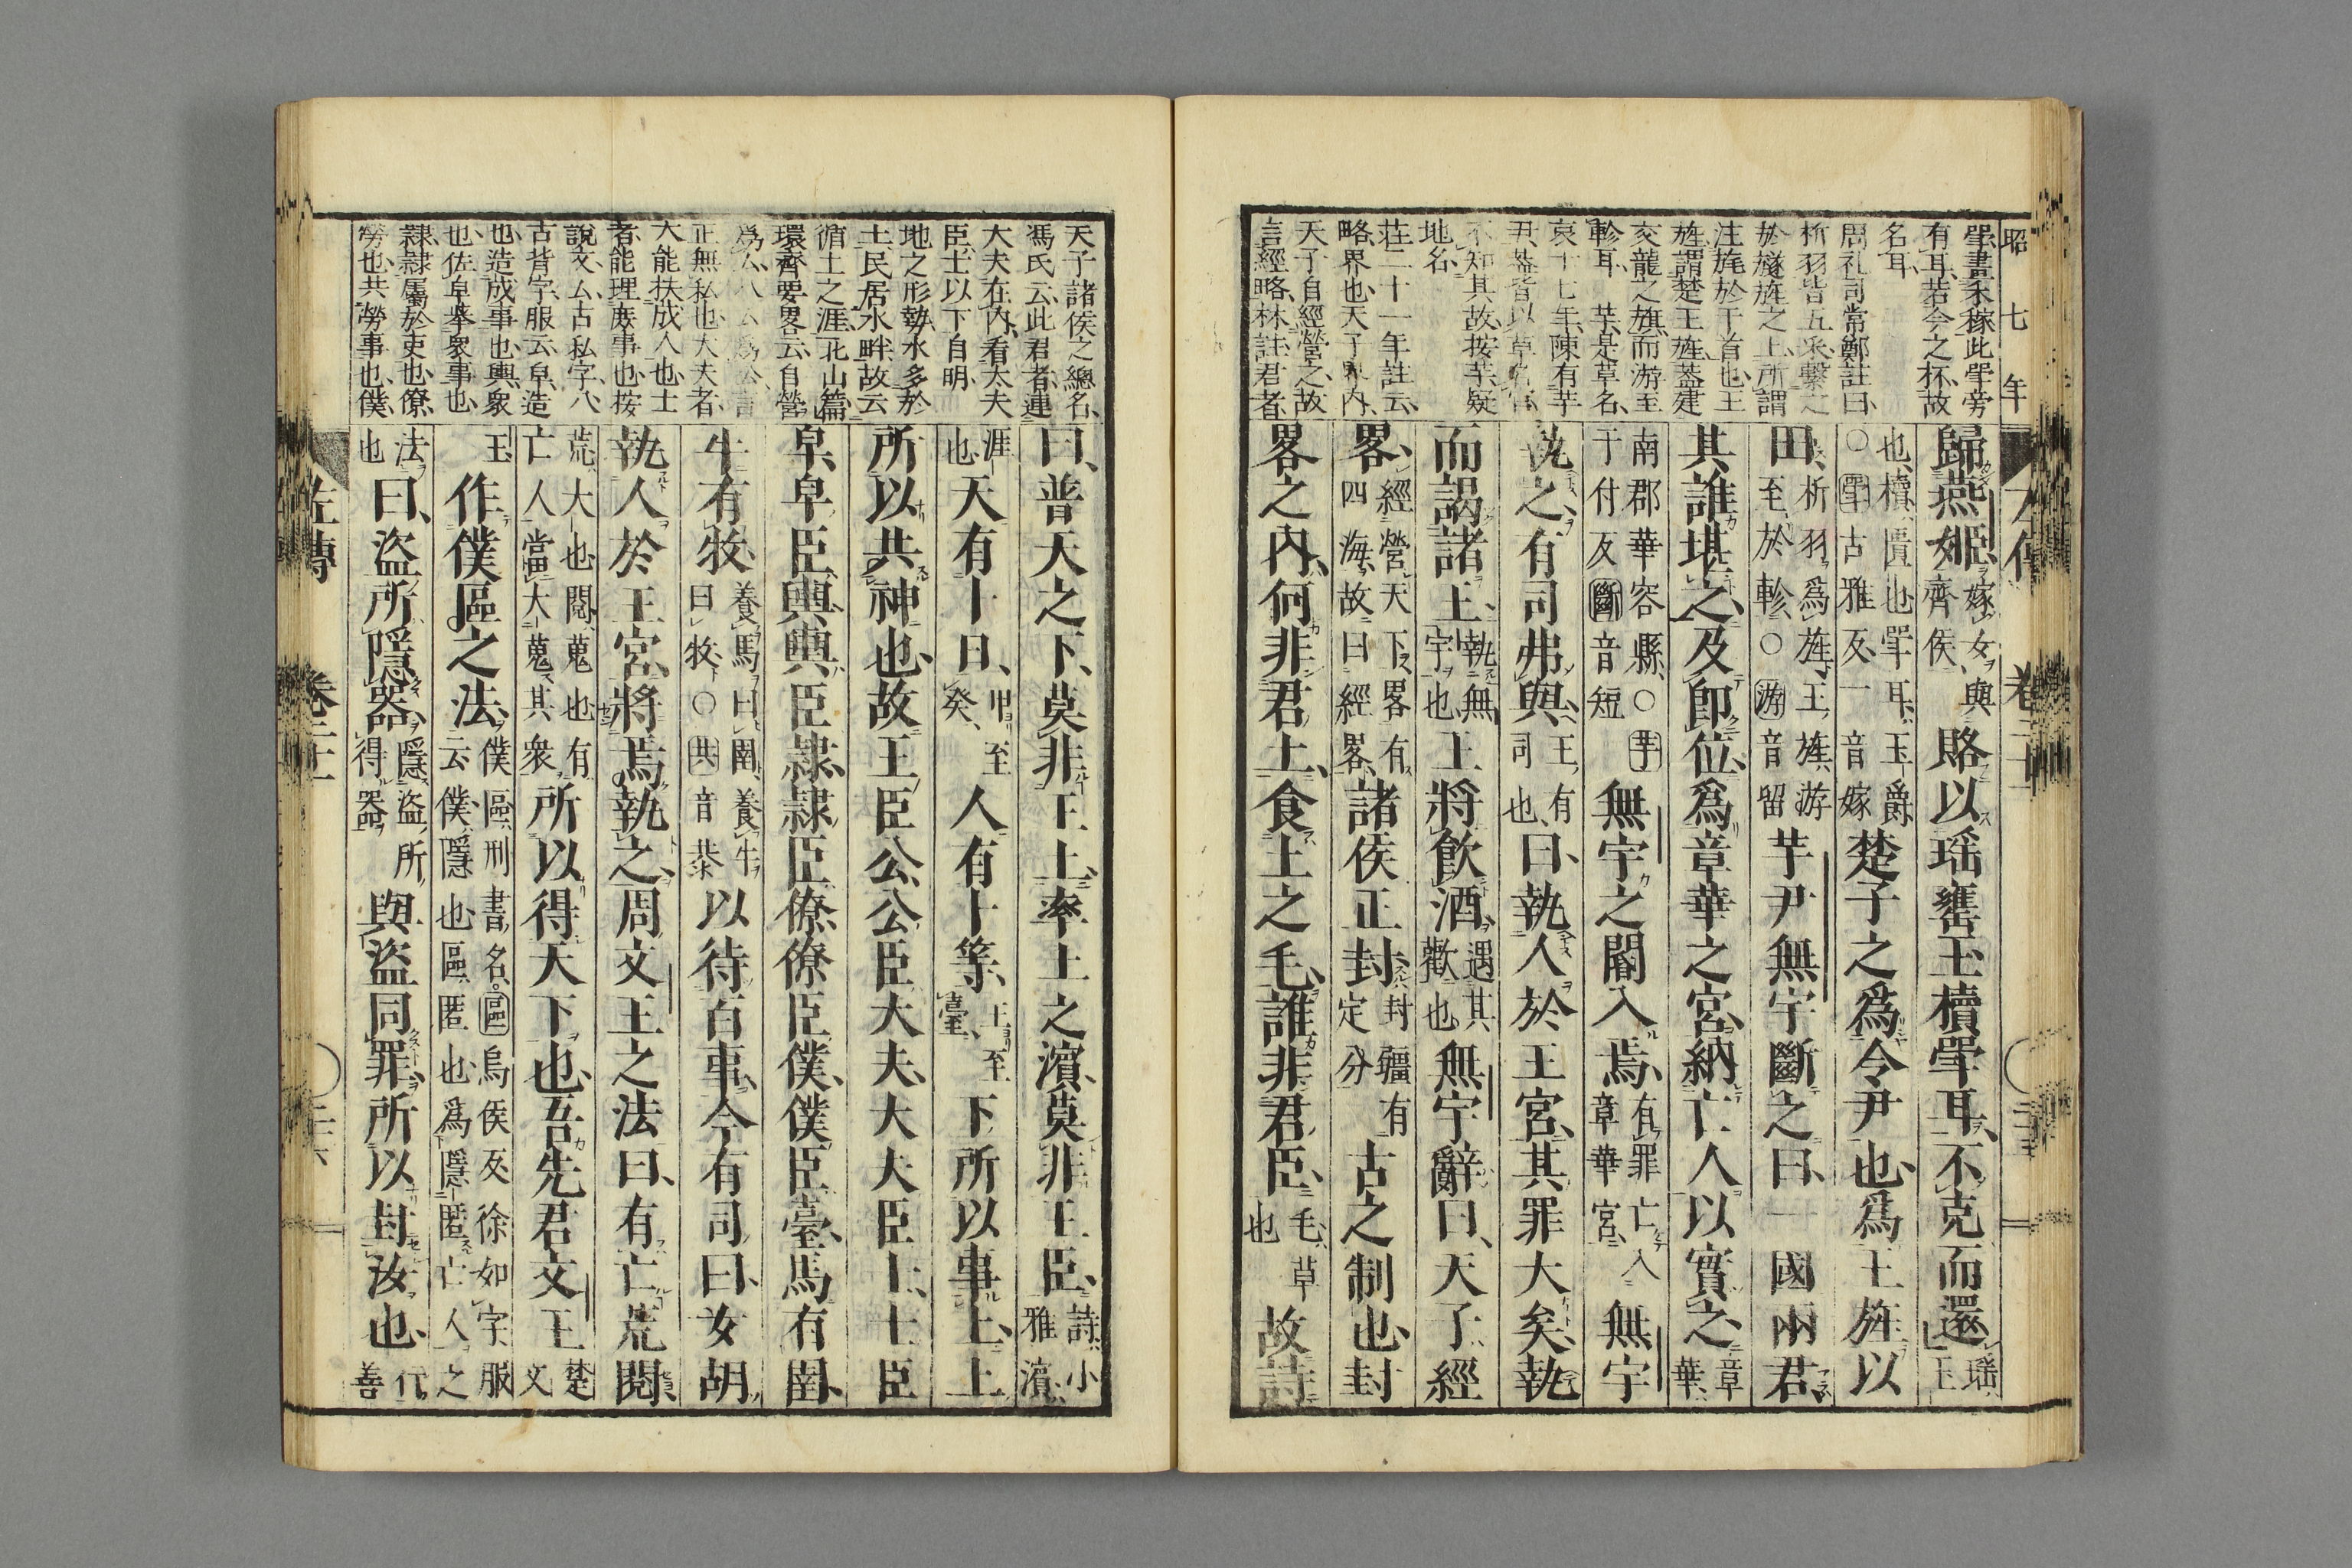 昭 七 年
斝畫禾稼此斝旁
有耳若今之杯故
名耳
周礼司常鄭註曰
析羽皆五采繫之
於旞旌之上所謂
注旄於干首也王
旌謂楚王旌蓋建
交龍之旗而游至
軫耳 芋是草名
哀十七年陳有芋
尹蓋皆以草名官
不知其故按芋疑
地名
莊二十一年註云
略界也天子界内
天子自經營之故
言經略林註君者
歸燕姬嫁女與齊侯賂以瑤罋玉櫝斝耳不克而還瑤玉
也櫝匱也斝耳玉爵○斝古雅反一音嫁楚子之爲令尹也爲王旌以
田析羽爲旌王旌游至於軫○游音留芋尹無宇斷之曰一國兩君
其誰堪之及即位爲章華之宮納亡人以實之章華
南郡華容縣○芋于付反斷音短無宇之閽入焉有罪亡入章華宮無宇
執之有司弗與王有司也曰執人於王宮其罪大矣執
而謁諸王執無宇也王將飲酒遇其歡也無宇辭曰天子經
畧經營天下畧有四海故曰經畧諸侯正封封疆有定分古之制也封
畧之内何非君土食土之毛誰非君臣毛草也故詩
天子諸侯之總名
馮氏云此君者連
大夫在内看大夫
臣士以下自明
地之形勢水多於
土民居水畔故云
循土之涯北山篇
環齊要畧云自營
爲厶八厶爲公言
正無私也大夫者
大能扶成人也士
者能理庶事也按
說文厶古私字八
古背字服云皁造
也造成事也輿衆
也佐皁擧衆事也
隸隸屬於吏也僚
勞也共勞事也僕
曰普天之下莫非王土率土之濱莫非王臣詩小雅濱
涯也天有十日甲至癸人有十等王至臺下所以事上上
所以共神也故王臣公公臣大夫大夫臣士士臣
皁皁臣輿輿臣隸隸臣僚僚臣僕僕臣臺馬有圉
牛有牧養馬曰圉養牛曰牧○共音恭以待百事今有司曰女胡
執人於王宮將焉執之周文王之法曰有亡荒閱
荒大也閱蒐也有亡人當大蒐其衆所以得天下也吾先君文王楚文
王作僕區之法僕區刑書名區烏侯反徐如字服云僕隱也區匿也爲隱匿亡人之
法也曰盜所隱器隱盜所得器與盜同罪所以封汝也行善
左傳 卷二十